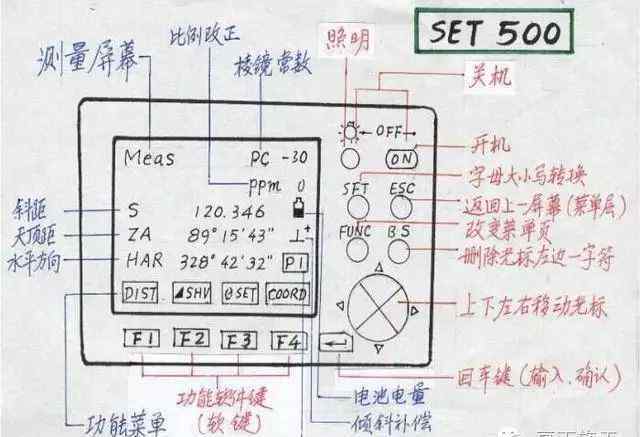 SET 500
比例改正
照明
测量屏幕
棱镜常数
关机
← OFF →
Meas
PC -30
ON
开机
ppm 0
SFT
ESC
字母大小写转换
斜距
S 120.346
返回上一屏幕(菜单层)
天顶距
ZA 89° 15' 43"
FUNC
BS
改变菜单页
水平方向
HAR 328° 42' 32"
P1
删除光标左边一字符
DIST
◢SHV
∅SET
COORD
上下左右移动光标
F1
F2
F3
F4
功能软件键
(软键)
回车键(输入、确认)
功能菜单
电池电量
倾斜补偿